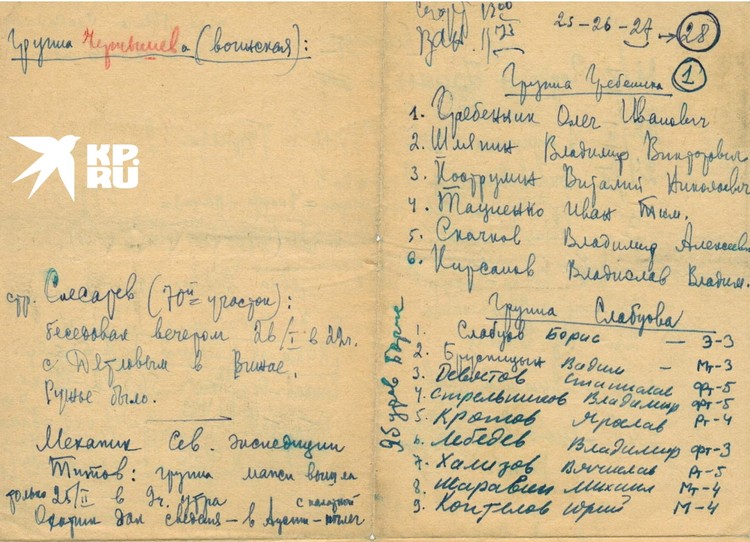 Группа Чернышева (воинская):
KP.RU
стр. Слесарев (70й участок):
беседовал вечером 26/I в 22г.
с Дятловым в Вижае.
Ружье было.
Механик Сев. экспедиции
Титов: группа манси вышла
только 25/II в 9г. утра
Охотник дал сведения – в
25-26-27 → 28
1
Группа Гребенника
1. Гребенник Олег Иванович
2. Шляпин Владимир Викторович
3. Постружин Виталий Николаевич
4. Тациенко Иван Тим.
5. Скачков Владимир Алексеевич
6. Кирсанов Владислав Владим.
Группа Слабцова
1. Слабцов Борис – Э-3
2. Брусницын Вадим – Мт-3
3. Девятов Станислав Фт-5
4. Стрельников Владимир Фт-5
5. Кротов Ярослав Рт-4
6. Лебедев Владимир Фт-3
7. Хализов Вячеслав Рт-5
8. Шаравин Михаил Мт-4
9. Коптелов Юрий М-4
Борис